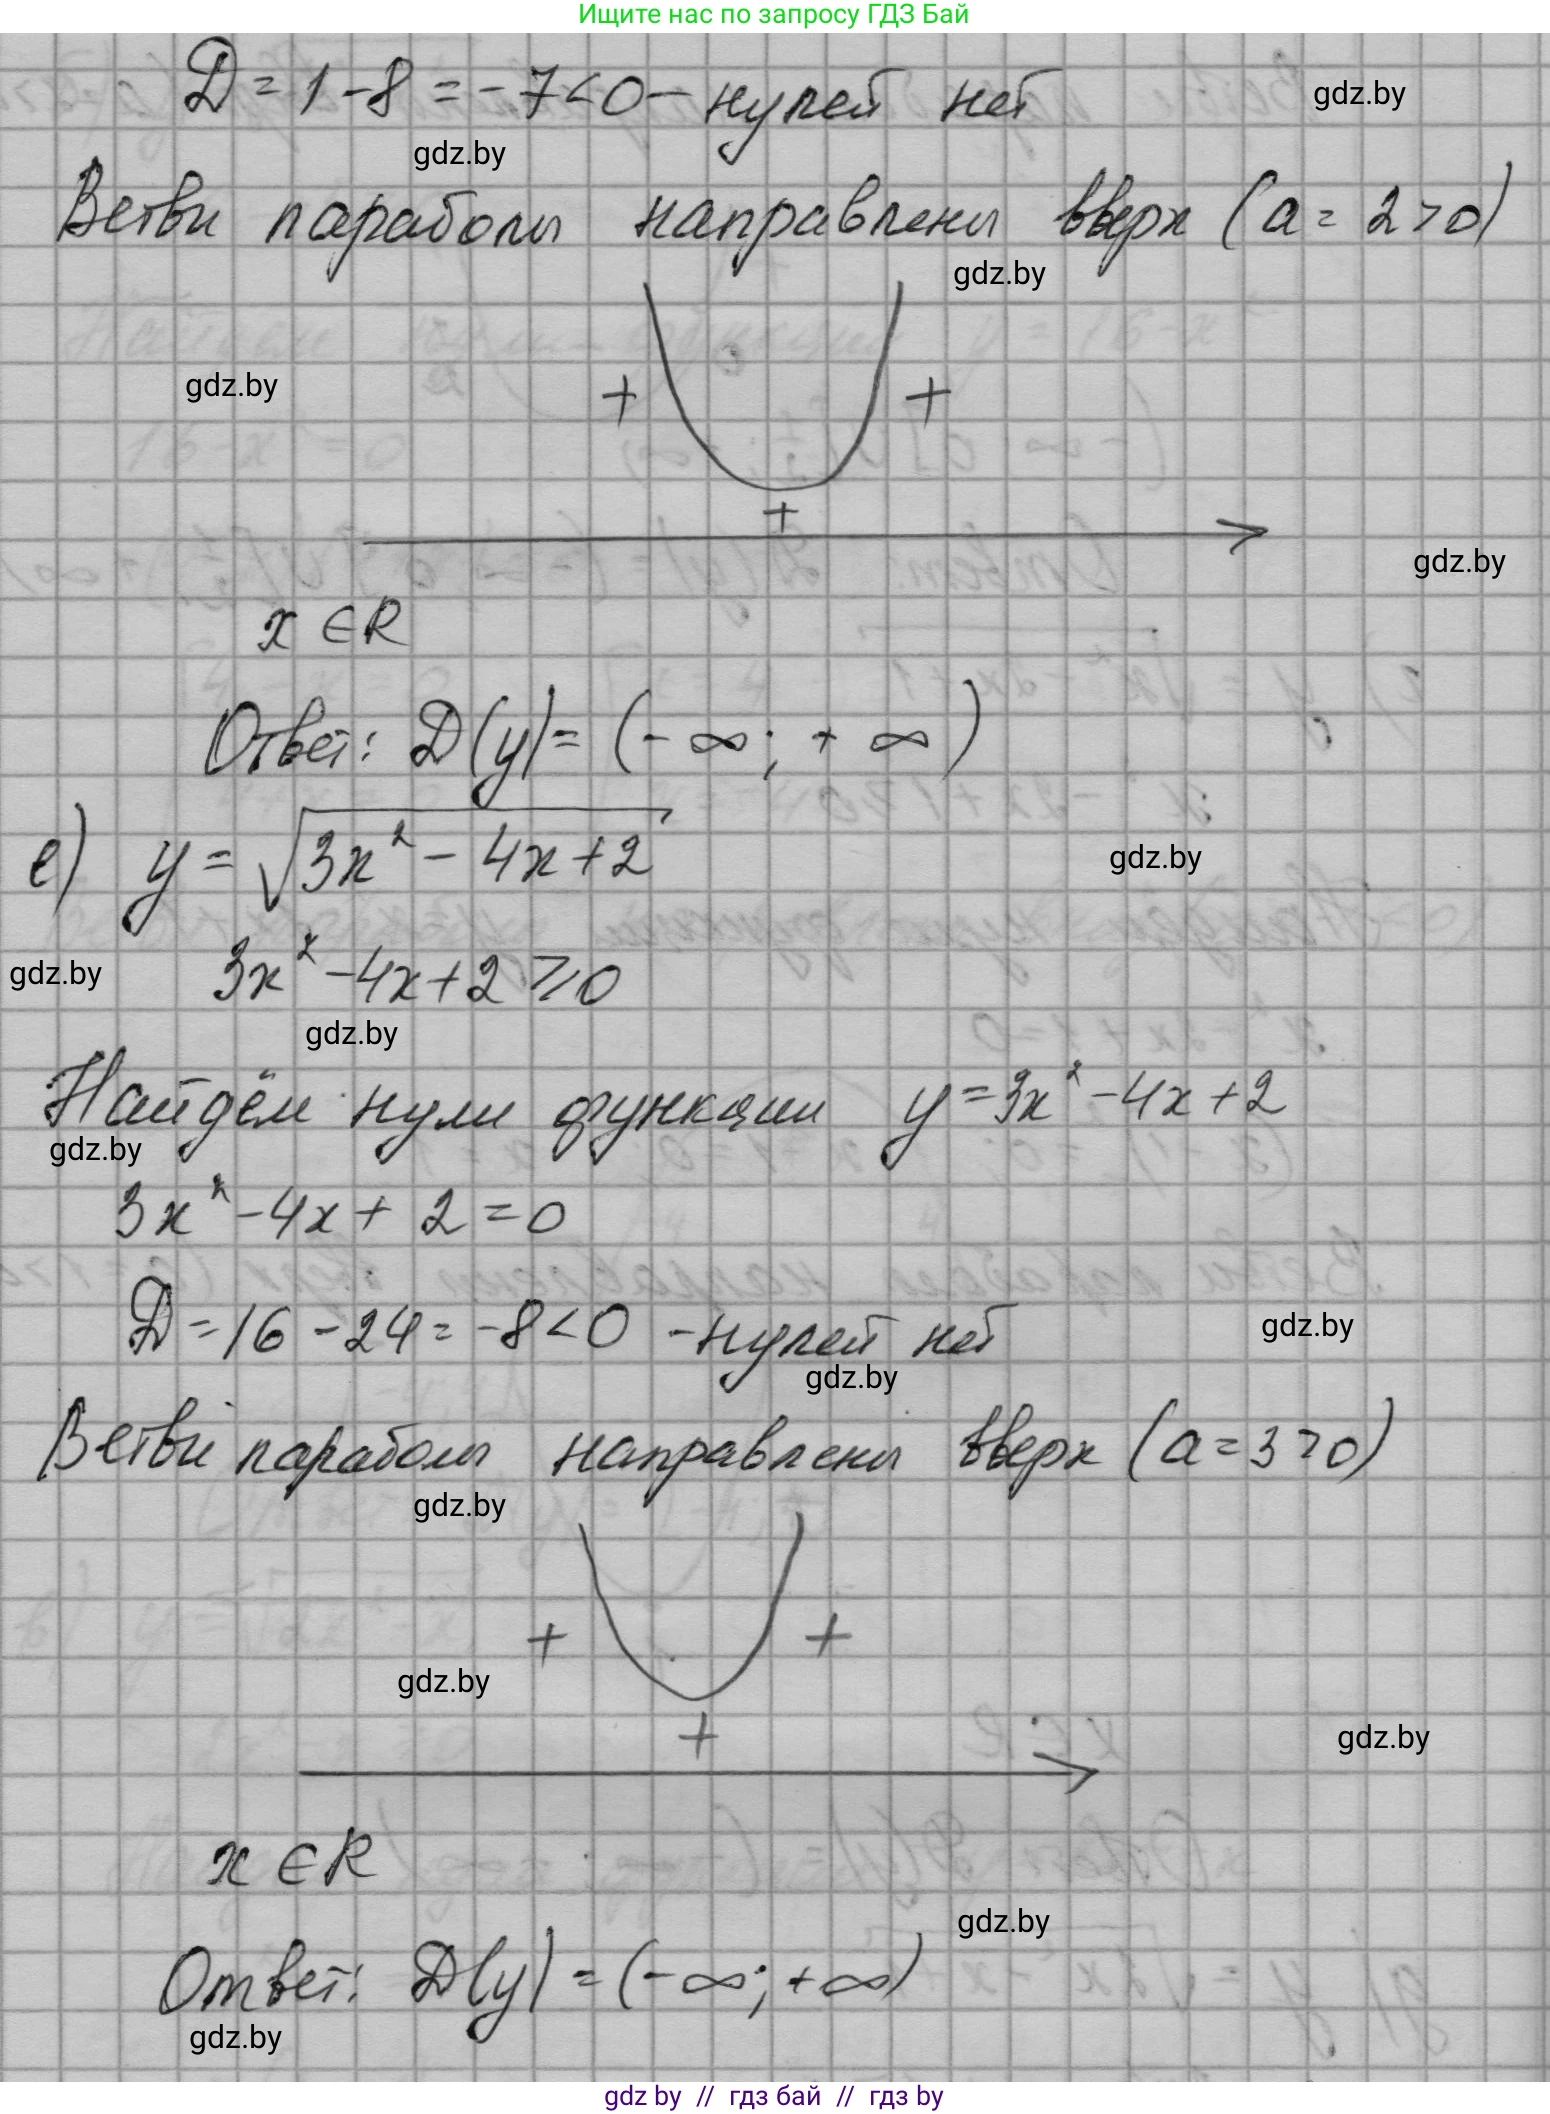 Ищите нас по запросу ГДЗ Бай
D = 1 - 8 = -7 < 0 - нулей нет
gdz.by
gdz.by
Ветви параболы направлены вверх (a = 2 > 0)
gdz.by
gdz.by
+ +
+
gdz.by
x ∈ R
Ответ: D(y) = (-∞; +∞)
е) y = √3x² - 4x + 2
gdz.by
3x² - 4x + 2 ≥ 0
gdz.by
gdz.by
Найдём нули функции y = 3x² - 4x + 2
gdz.by
3x² - 4x + 2 = 0
D = 16 - 24 = -8 < 0 - нулей нет
gdz.by
gdz.by
Ветви параболы направлены вверх (a = 3 > 0)
gdz.by
+ +
gdz.by
+
gdz.by
x ∈ R
gdz.by
Ответ: D(y) = (-∞; +∞)
gdz.by
gdz by // гдз бай // гдз by